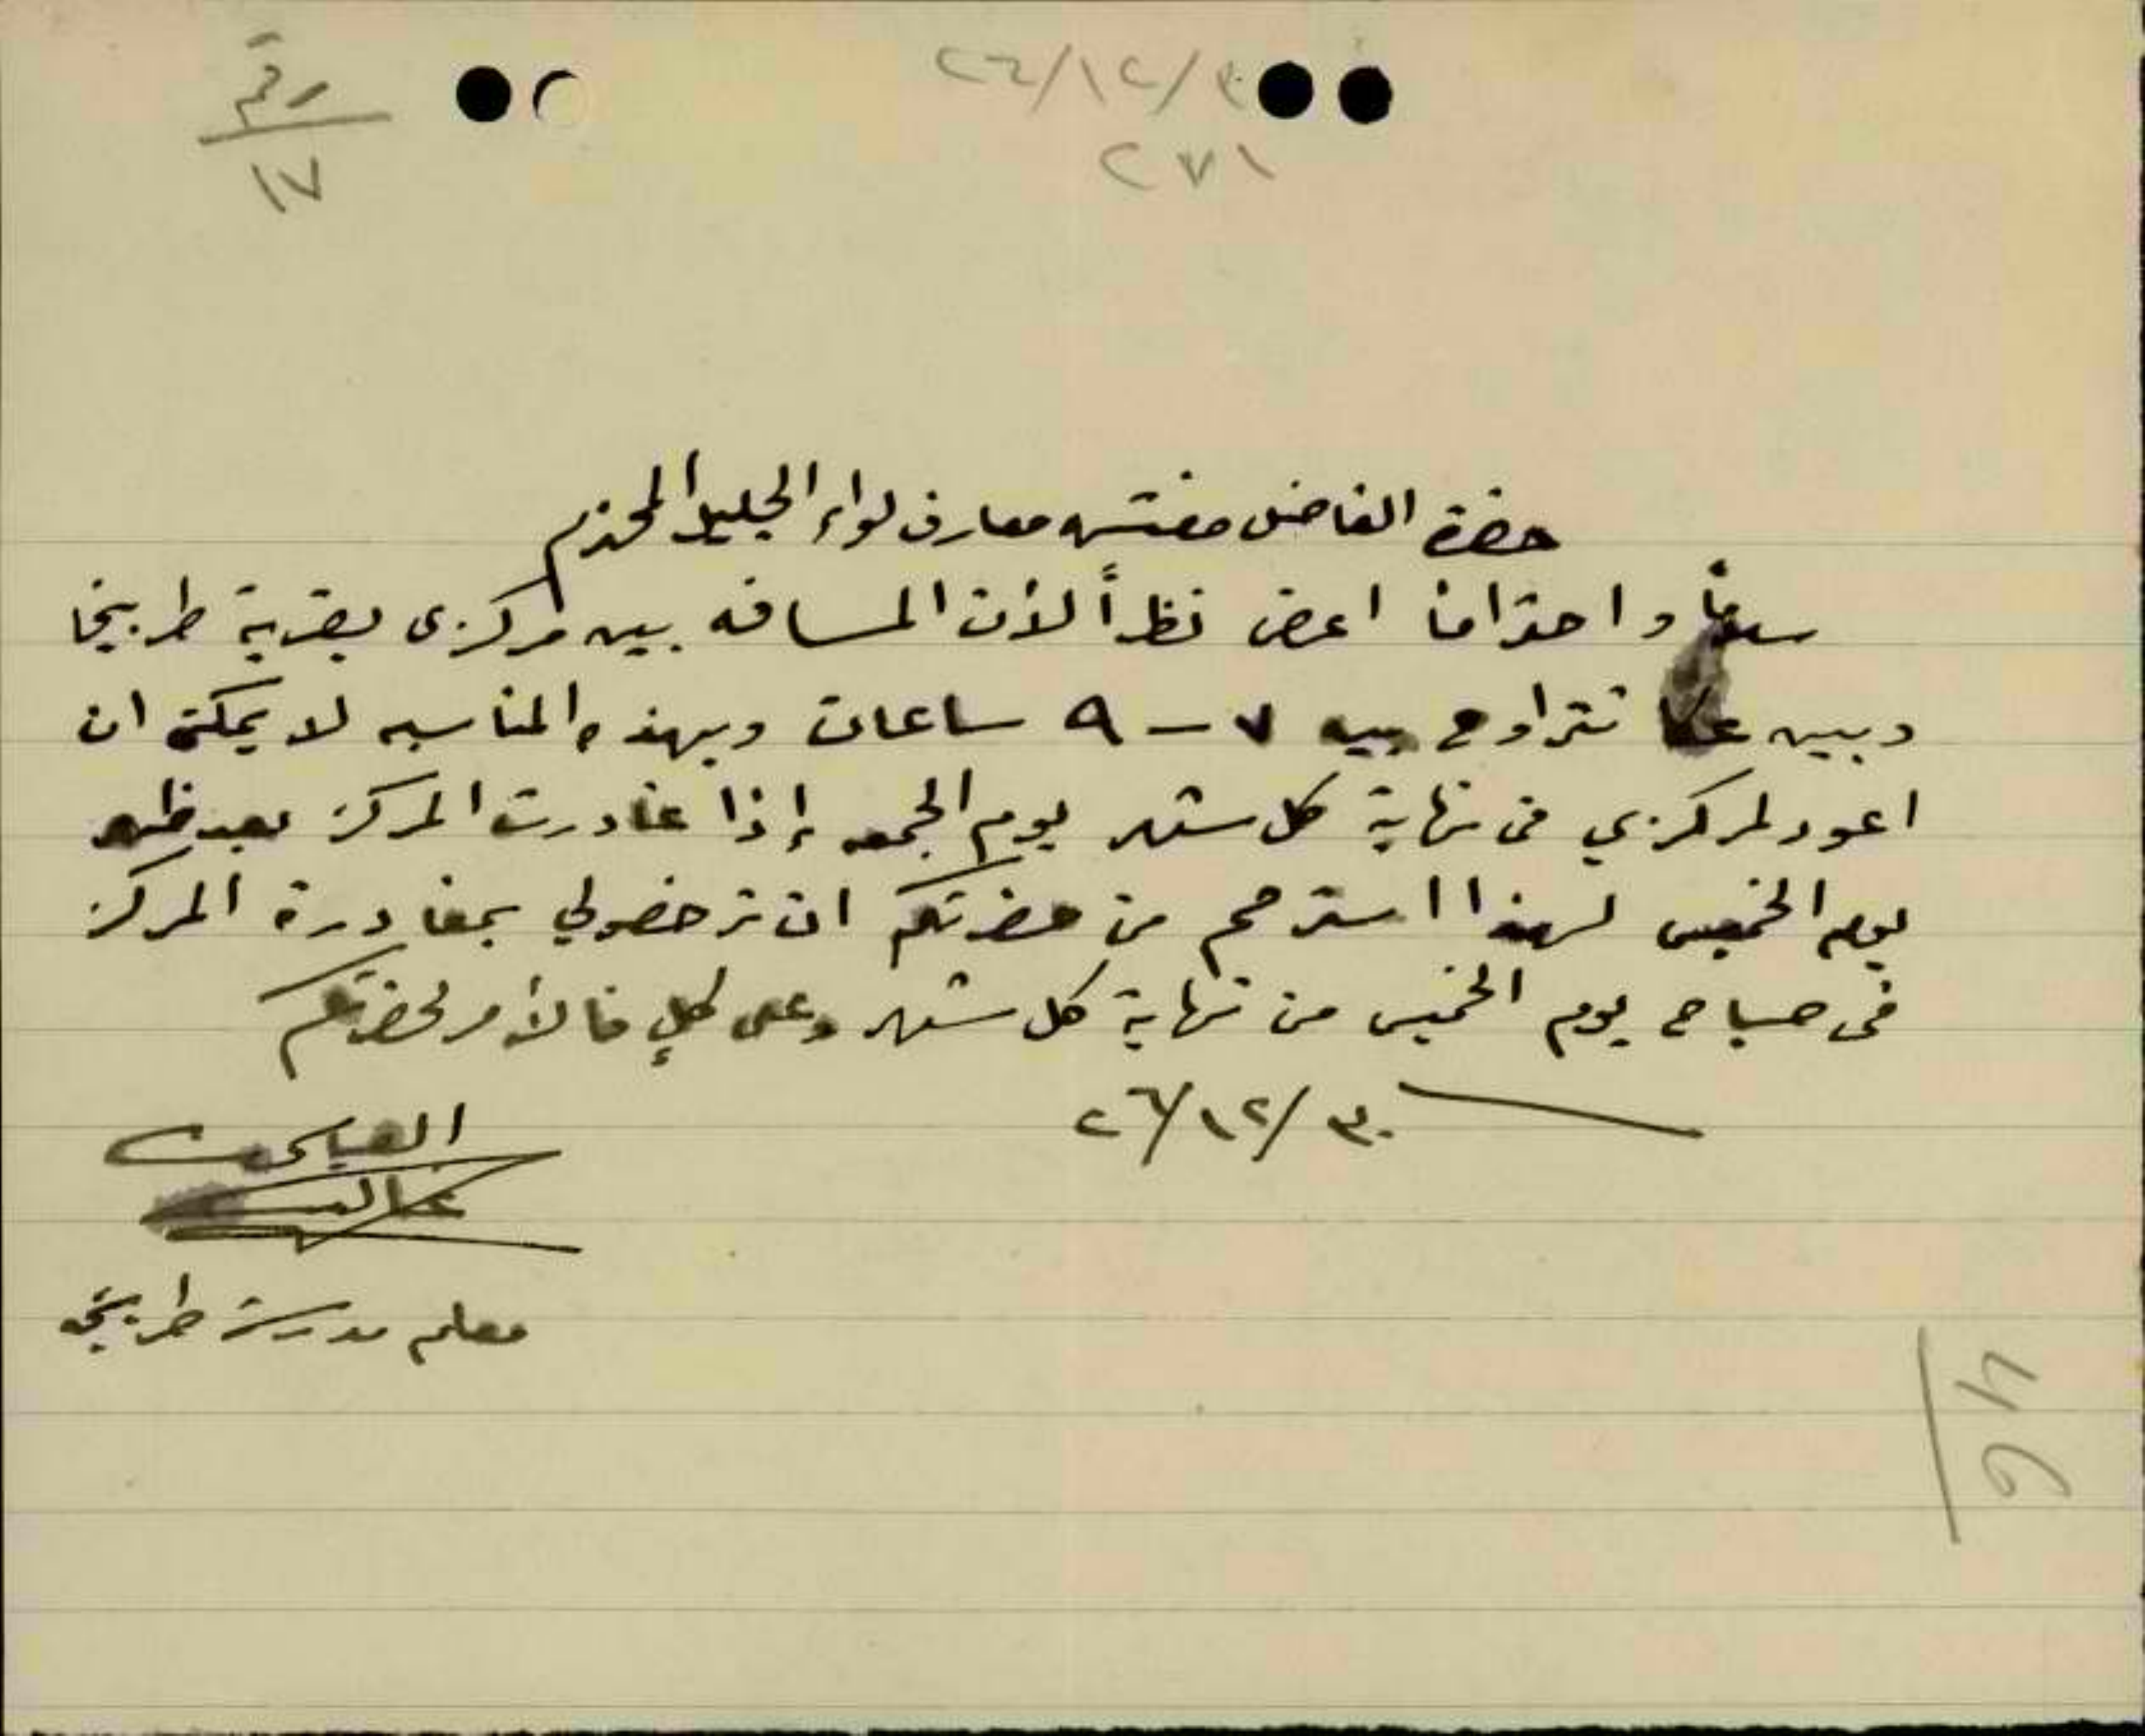 رقم
١٧
٢٦/١٢/٣٠
٢٧١
حضرة الفاضل مفتش معارف لواء الجليل المحترم
سلاماً واحتراما اعرض نظراً لأن المسافه بين مركزى بقرية طربيخا
وبين عكا تتراوح بين ٧ – ٩ ساعات وبهذه المناسبه لا يمكن ان
اعود لمركزي في نهاية كل شهر يوم الجمعه إذا غادرت المركز بعد ظهر
يوم الخميس لهذا استرحم من حضرتكم ان ترخصولي بمغادرة المركز
في صباح يوم الخميس من نهاية كل شهر وعلى كلٍ فالأمر لحضرتكم
٢٦/١٢/٣٠
معلم مدرسة طربيخه